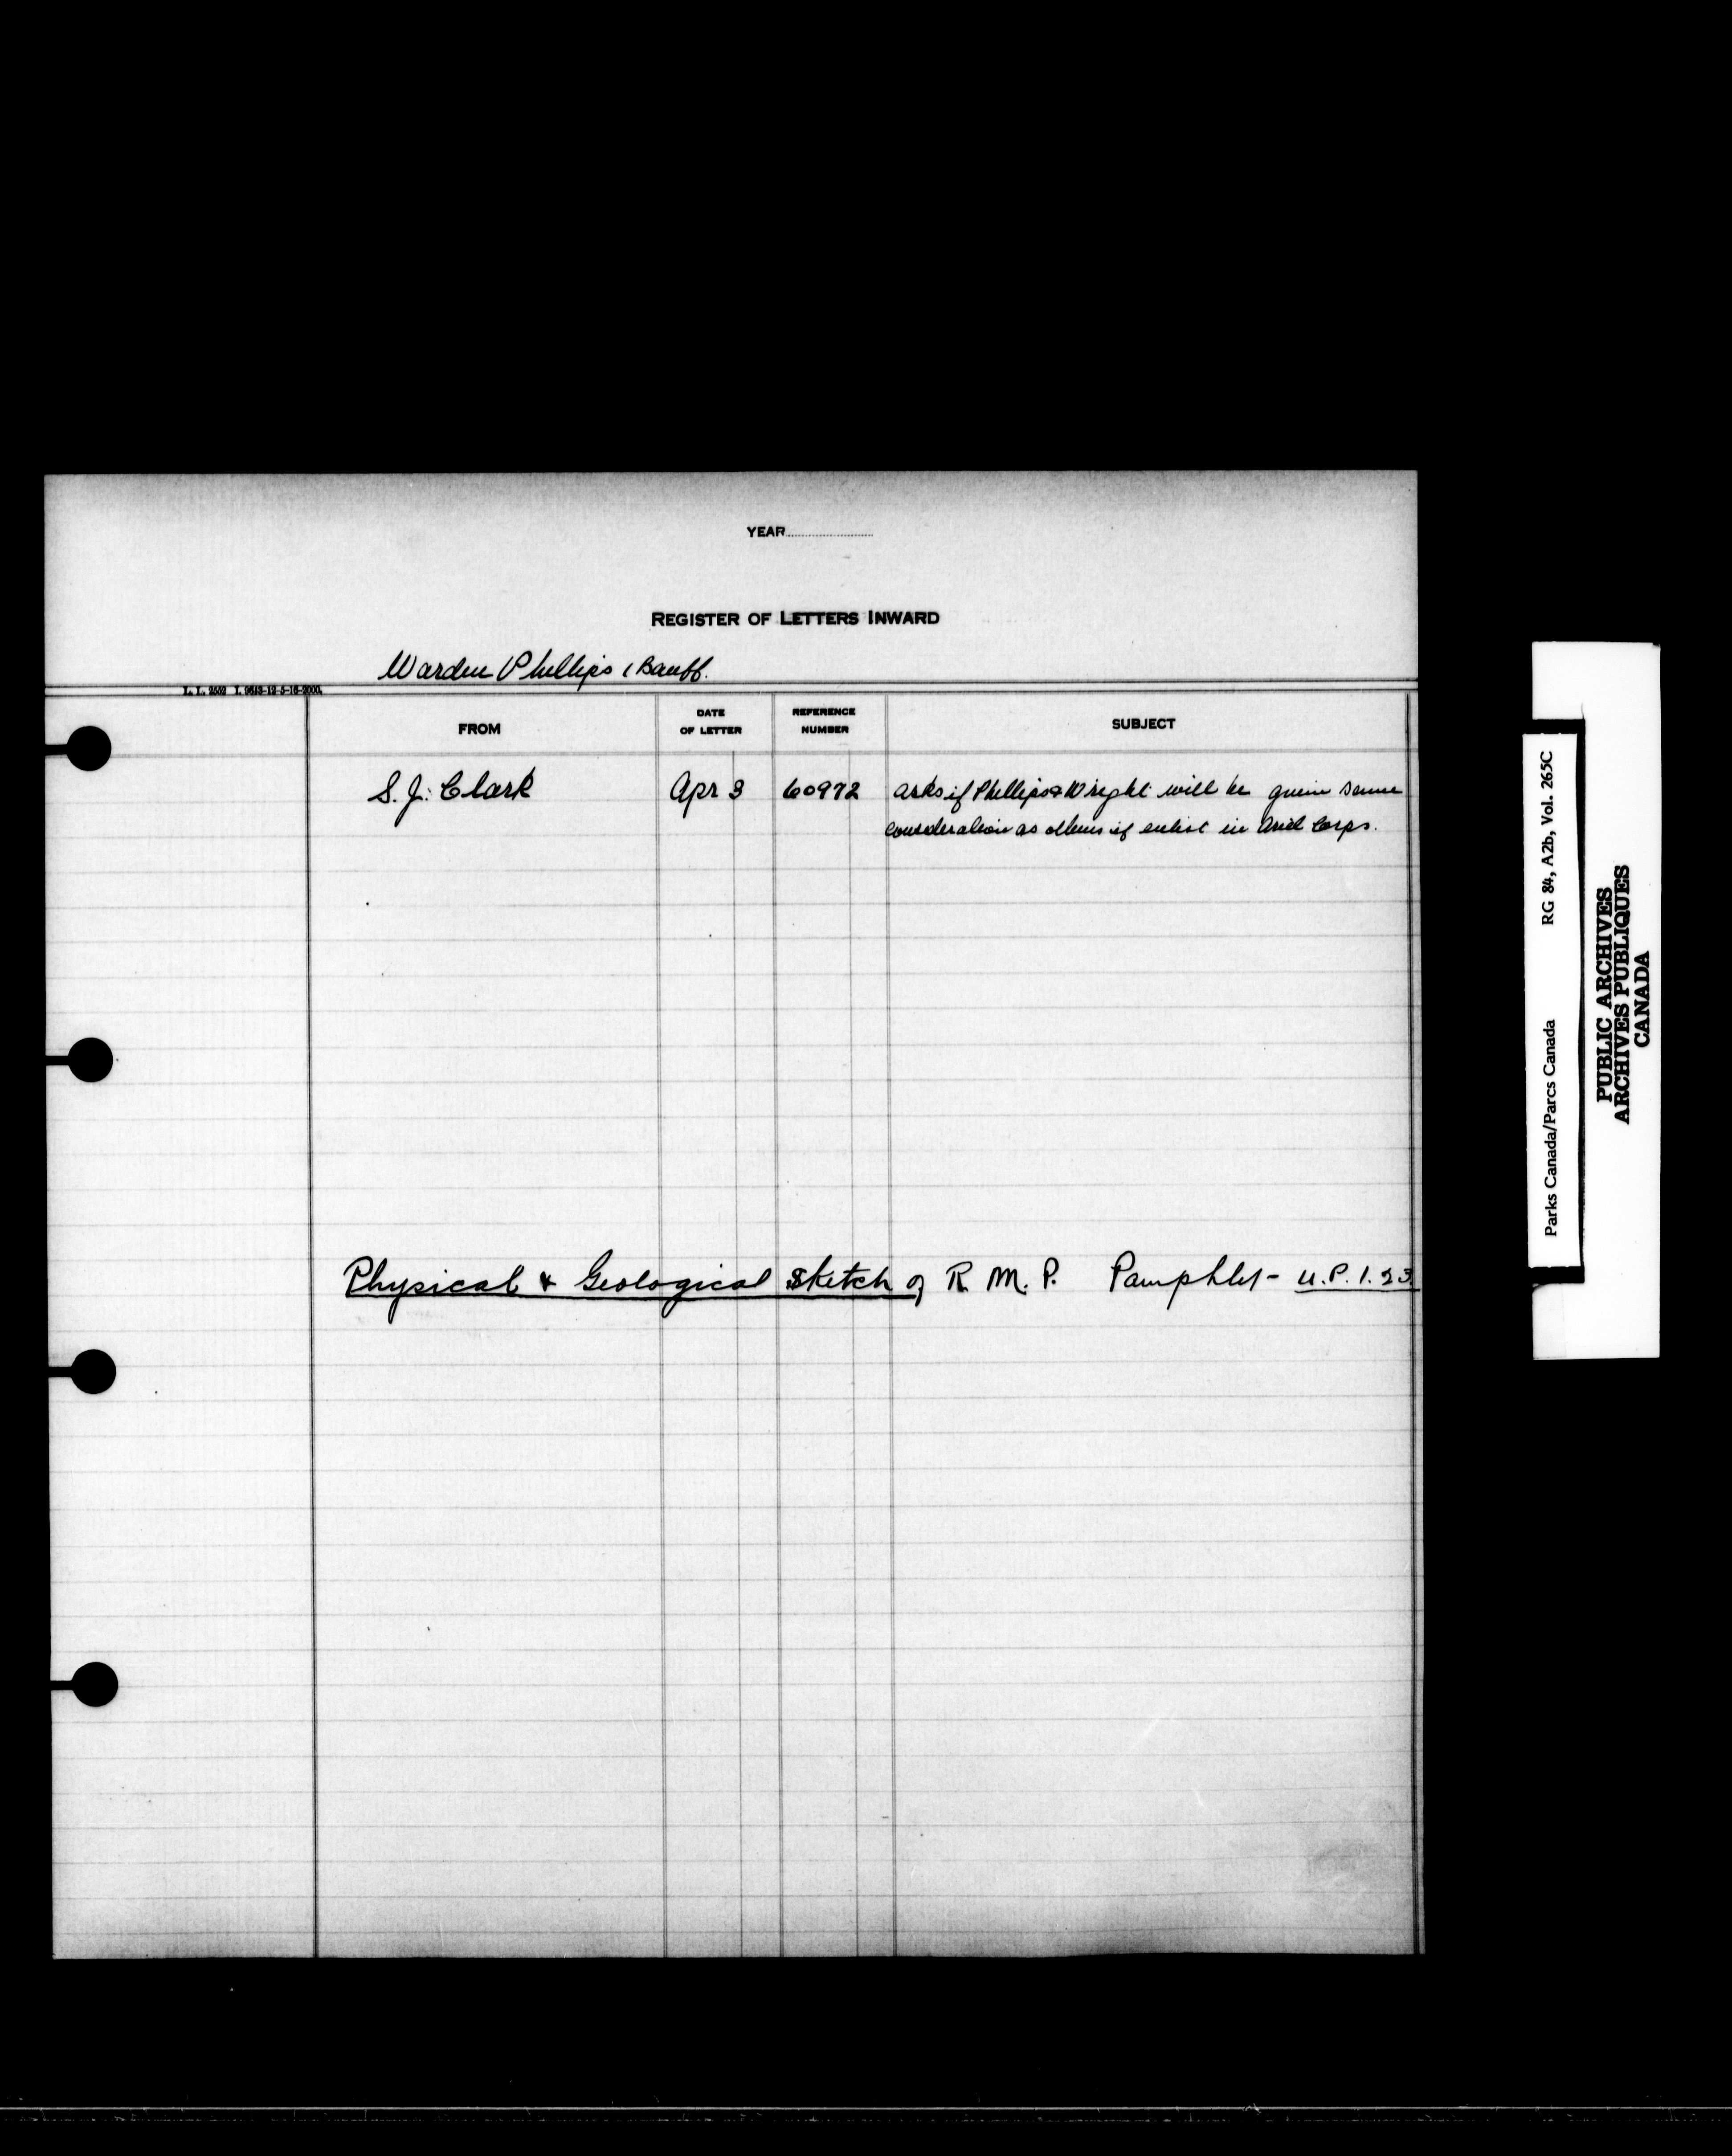 YEAR
REGISTER OF LETTERS INWARD
Warden Phillips (Banff.
L. L. 2552 I. 9643-12-5-16-2000.
FROM DATE OF LETTER REFERENCE NUMBER SUBJECT
S. J. Clark Apr 3 60972 asks if Phillips & Wright will be given same
consideration as others if enlist in Corps.
Physical & Geological Sketch of R. M. P. Pamphlet - U.P. 1. 23.
Parks Canada/Parcs Canada RG 84, A2b, Vol. 265C
PUBLIC ARCHIVES
ARCHIVES PUBLIQUES
CANADA